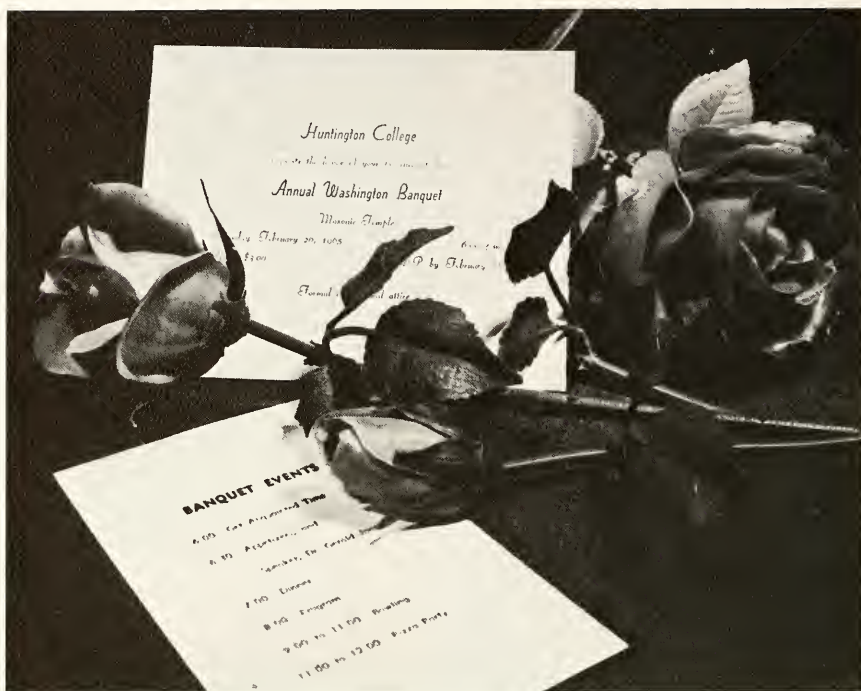 Huntington College
Annual Washington Banquet
Masonic Temple
February 20, 1965
$3.00 P by February
Formal attire
BANQUET EVENTS
6:00 Get Acquainted Time
6:30 Appetizers and
Speaker, Dr. Gerald
7:00 Dinner
8:00 Program
9:00 to 11:00 Bowling
11:00 to 12:00 Pizza Party